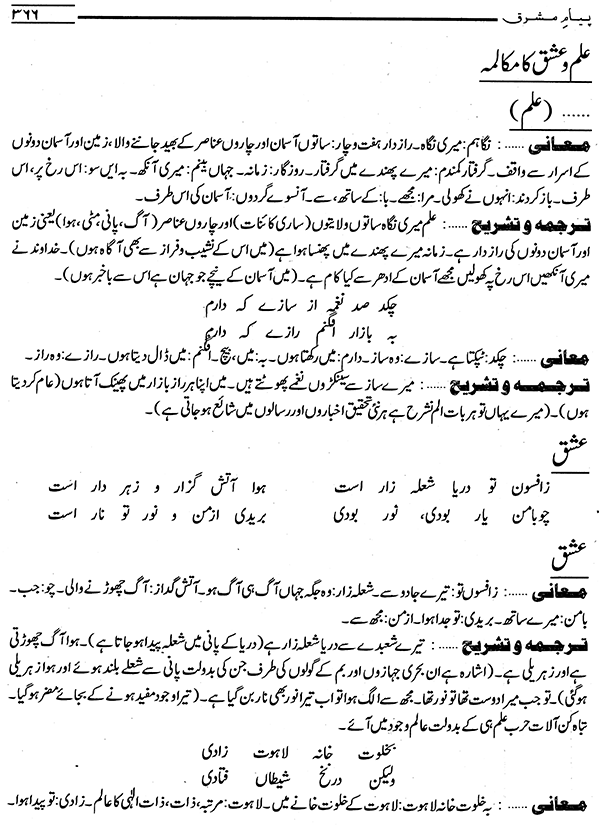 پیامِ مشرق ۳۶۶
علم و عشق کا مکالمہ
...... (علم)
معانی ......: نگاہم: میری نگاہ۔ رازدار ہفت و چار: ساتوں آسمان اور چاروں عناصر کے بھید جاننے والا، زمین اور آسمان دونوں
کے اسرار سے واقف۔ گرفتار کمندم: میرے پھندے میں گرفتار۔ روزگار: زمانہ۔ جہاں بینم: میری آنکھ۔ بہ ایں سو: اس رخ پر، اس
طرف۔ باز کردند: انہوں نے کھولی۔ مرا: مجھے۔ با: کے ساتھ، سے۔ آنسوے گردوں: آسمان کی اس طرف۔
ترجمہ و تشریح ......: علم میری نگاہ ساتوں ولایتوں (ساری کائنات) اور چاروں عناصر (آگ، پانی، مٹی، ہوا) یعنی زمین
اور آسمان دونوں کی رازدار ہے۔ زمانہ میرے پھندے میں پھنسا ہوا ہے (میں اس کے نشیب و فراز سے بھی آگاہ ہوں)۔ خداوند نے
میری آنکھیں اس رخ پہ کھولیں مجھے آسمان کے ادھر سے کیا کام ہے۔ (میں آسمان کے نیچے جو جہان ہے اس سے باخبر ہوں)۔
چکد صد نغمہ از سازے کہ دارم
بہ بازار افگنم رازے کہ دارم
معانی ......: چکد: ٹپکتا ہے۔ سازے: وہ ساز۔ دارم: میں رکھتا ہوں۔ بہ: میں، بیچ۔ افگنم: میں ڈال دیتا ہوں۔ رازے: وہ راز۔
ترجمہ و تشریح ......: میرے ساز سے سینکڑوں نغمے پھوٹتے ہیں۔ میں اپنا ہر راز بازار میں پھینک آتا ہوں (عام کر دیتا
ہوں)۔ (میرے یہاں تو ہر بات الم نشرح ہے ہر نئی تحقیق اخباروں اور رسالوں میں شائع ہو جاتی ہے)۔
عشق
زافسون تو دریا شعلہ زار است ہوا آتش گزار و زہر دار است
چو بامن یار بودی، نور بودی بریدی ازمن و نور تو نار است
عشق
معانی ......: زافسوں تو: تیرے جادو سے۔ شعلہ زار: وہ جگہ جہاں آگ ہی آگ ہو۔ آتش گداز: آگ چھوڑنے والی۔ چو: جب۔
بامن: میرے ساتھ۔ بریدی: تو جدا ہوا۔ ازمن: مجھ سے۔
ترجمہ و تشریح ......: تیرے شعبدے سے دریا شعلہ زار ہے (دریا کے پانی میں شعلہ پیدا ہو جاتا ہے)۔ ہوا آگ چھوڑتی
ہے اور زہریلی ہے۔ (اشارہ ہے ان بحری جہازوں اور بم کے گولوں کی طرف جن کی بدولت پانی سے شعلے بلند ہوئے اور ہوا زہریلی
ہو گئی)۔ تو جب میرا دوست تھا تو نور تھا۔ مجھ سے الگ ہوا تو اب تیرا نور بھی نار بن گیا ہے۔ (تیرا وجود مفید ہونے کے بجائے مضر ہو گیا۔
تباہ کن آلات حرب علم ہی کے بدولت عالم وجود میں آئے۔
بخلوت خانہ لاہوت زادی
ولیکن درنخ شیطاں فتادی
معانی ......: بہ خلوت خانہ لاہوت: لاہوت کے خلوت خانے میں۔ لاہوت: مرتبہ، ذات، ذات الٰہی کا عالم۔ زادی: تو پیدا ہوا۔